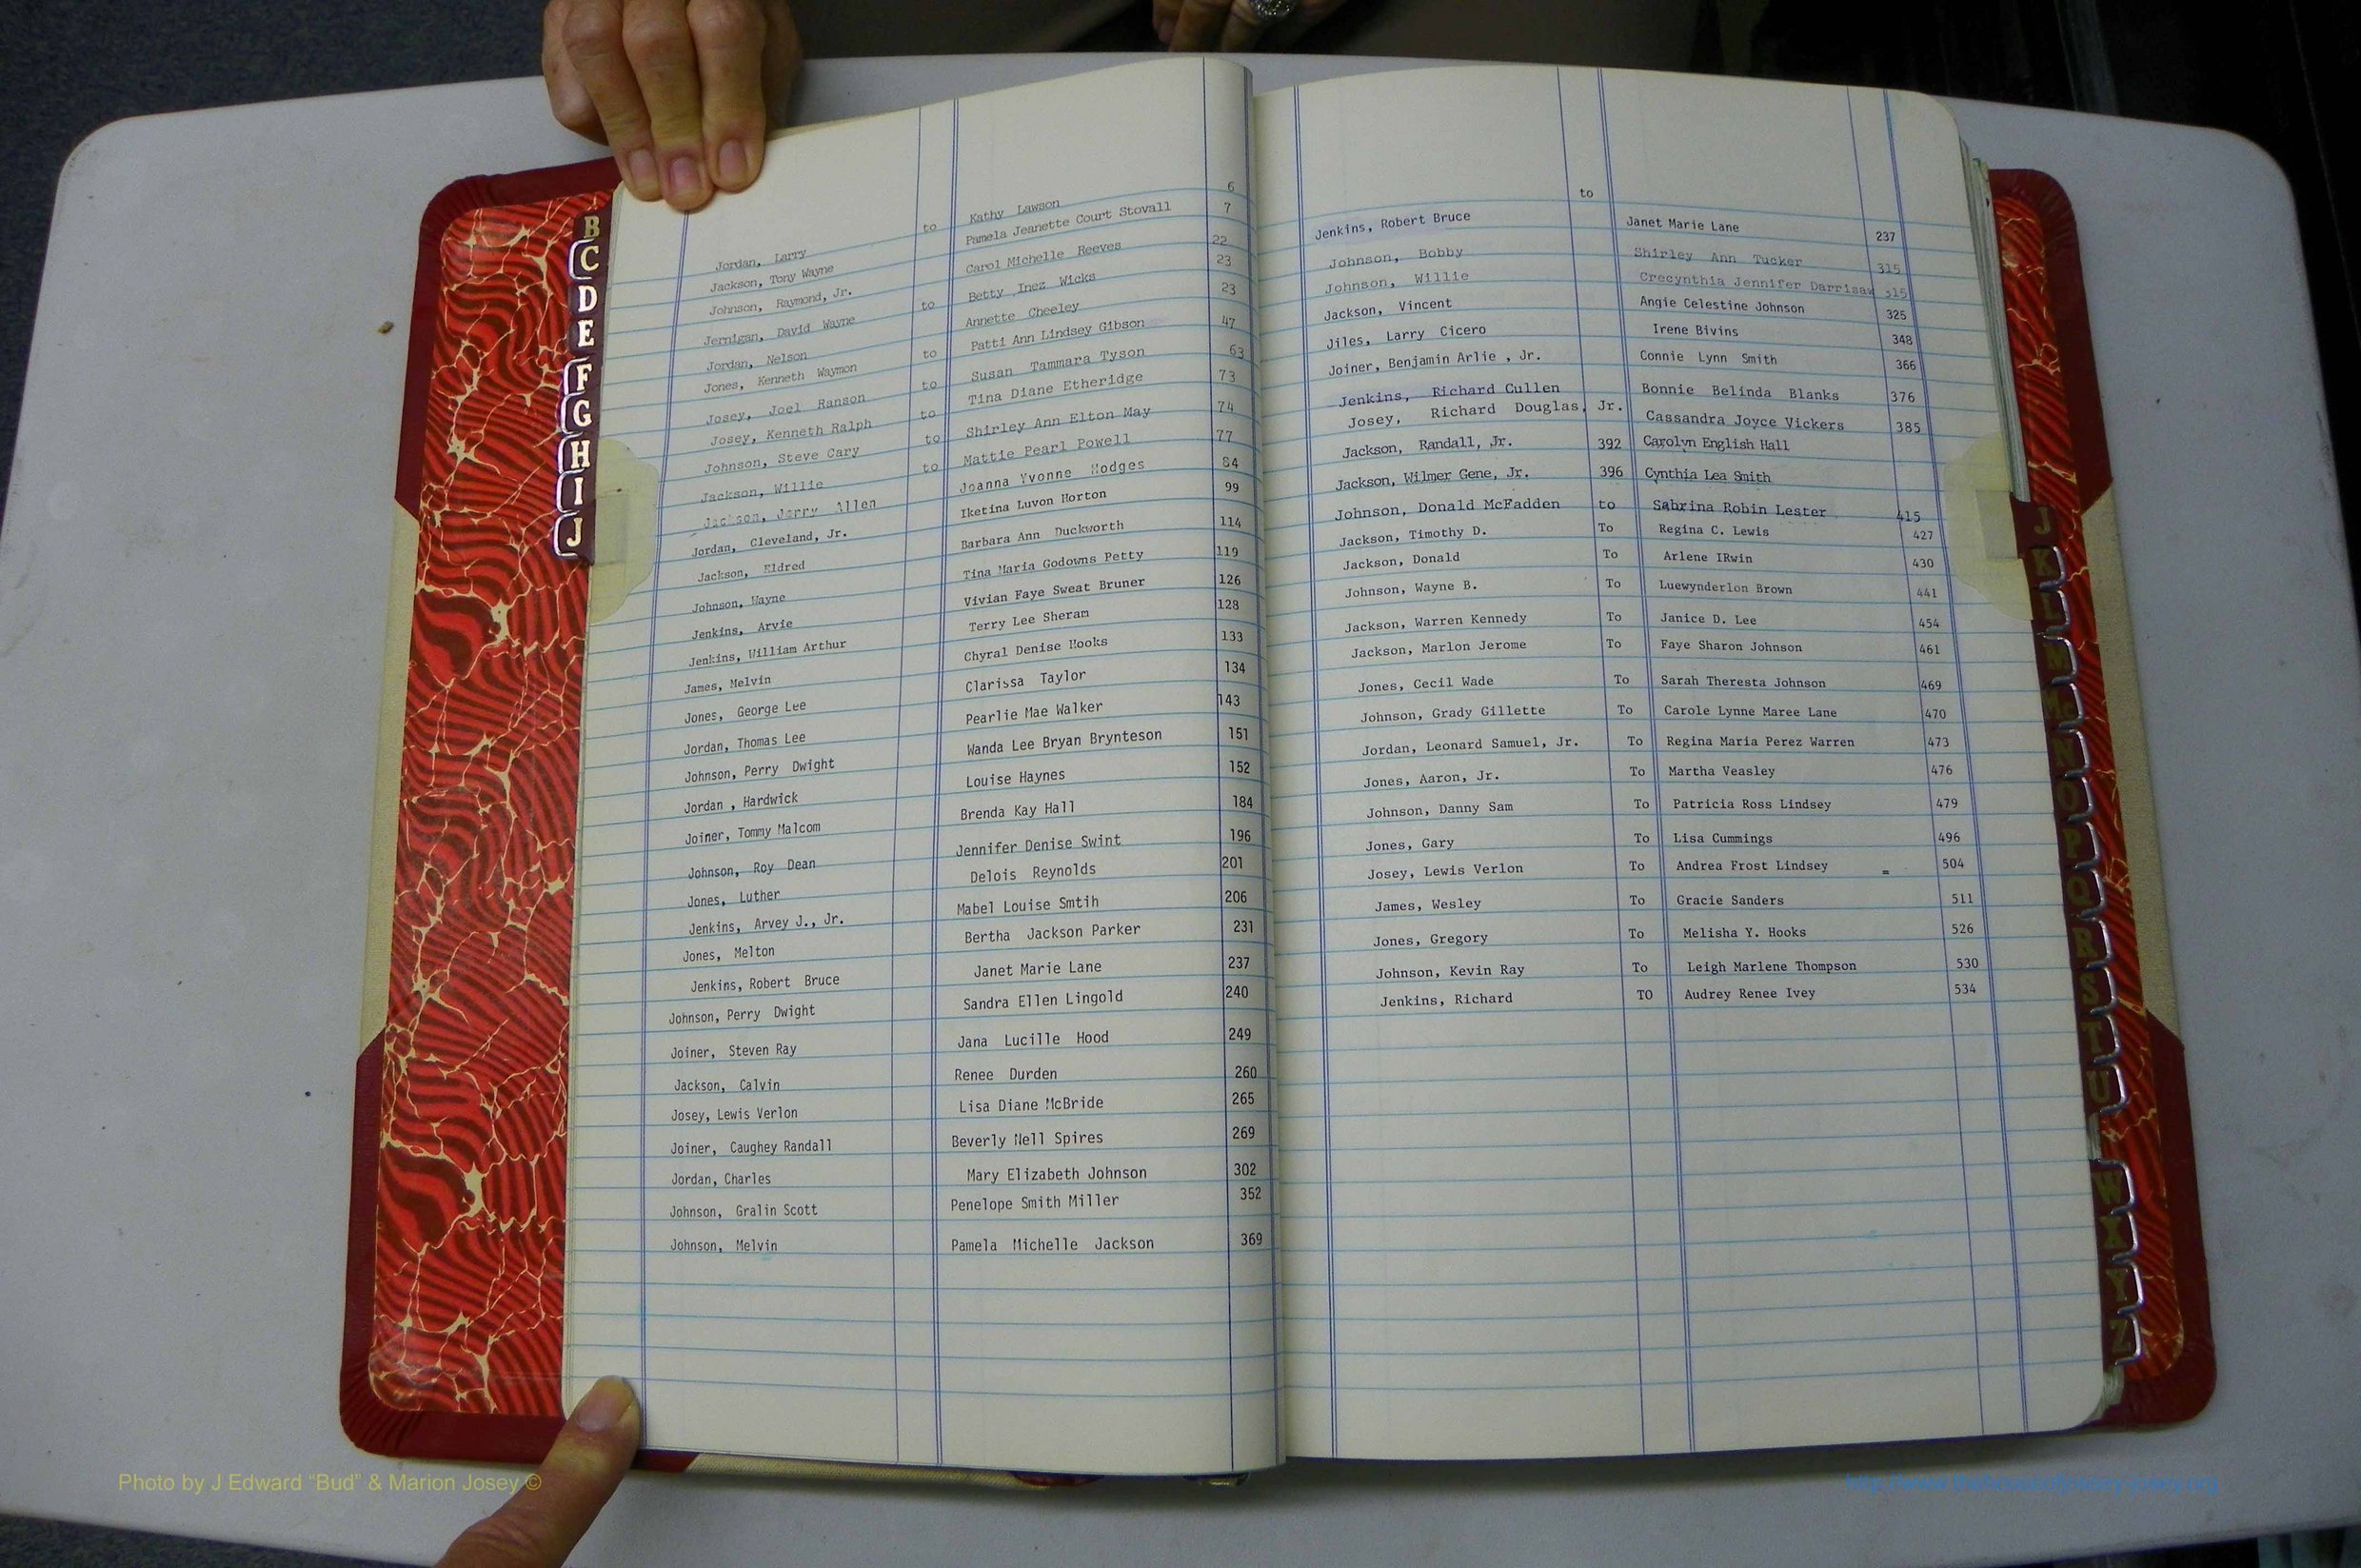 B
C
D
E
F
G
H
I
J
Jordan, Larry to Kathy Lawson 6
Jackson, Tony Wayne Pamela Jeanette Court Stovall 7
Johnson, Raymond, Jr. Carol Michelle Reeves 22
Jernigan, David Wayne to Betty Inez Wicks 23
Jordan, Nelson Annette Cheeley 23
Jones, Kenneth Waymon to Patti Ann Lindsey Gibson 47
Josey, Joel Ranson to Susan Tammara Tyson 63
Josey, Kenneth Ralph to Tina Diane Etheridge 73
Johnson, Steve Cary to Shirley Ann Elton May 74
Jackson, Willie to Mattie Pearl Powell 77
Jackson, Jerry Allen Joanna Yvonne Hodges 84
Jordan, Cleveland, Jr. Iketina Luvon Horton 99
Jackson, Eldred Barbara Ann Duckworth 114
Johnson, Wayne Tina Maria Godowns Petty 119
Jenkins, Arvie Vivian Faye Sweat Bruner 126
Jenkins, William Arthur Terry Lee Sheram 128
James, Melvin Chyral Denise Hooks 133
Jones, George Lee Clarissa Taylor 134
Jordan, Thomas Lee Pearlie Mae Walker 143
Johnson, Perry Dwight Wanda Lee Bryan Brynteson 151
Jordan , Hardwick Louise Haynes 152
Joiner, Tommy Malcom Brenda Kay Hall 184
Johnson, Roy Dean Jennifer Denise Swint 196
Jones, Luther Delois Reynolds 201
Jenkins, Arvey J., Jr. Mabel Louise Smtih 206
Jones, Melton Bertha Jackson Parker 231
Jenkins, Robert Bruce Janet Marie Lane 237
Johnson, Perry Dwight Sandra Ellen Lingold 240
Joiner, Steven Ray Jana Lucille Hood 249
Jackson, Calvin Renee Durden 260
Josey, Lewis Verlon Lisa Diane McBride 265
Joiner, Caughey Randall Beverly Nell Spires 269
Jordan, Charles Mary Elizabeth Johnson 302
Johnson, Gralin Scott Penelope Smith Miller 352
Johnson, Melvin Pamela Michelle Jackson 369
to
Jenkins, Robert Bruce Janet Marie Lane 237
Johnson, Bobby Shirley Ann Tucker 315
Johnson, Willie Crecynthia Jennifer Darrisaw 315
Jackson, Vincent Angie Celestine Johnson 325
Jiles, Larry Cicero Irene Bivins 348
Joiner, Benjamin Arlie , Jr. Connie Lynn Smith 366
Jenkins, Richard Cullen Bonnie Belinda Blanks 376
Josey, Richard Douglas, Jr. Cassandra Joyce Vickers 385
Jackson, Randall, Jr. 392 Carolyn English Hall
Jackson, Wilmer Gene, Jr. 396 Cynthia Lea Smith
Johnson, Donald McFadden to Sabrina Robin Lester 415
Jackson, Timothy D. To Regina C. Lewis 427
Jackson, Donald To Arlene IRwin 430
Johnson, Wayne B. To Luewynderlon Brown 441
Jackson, Warren Kennedy To Janice D. Lee 454
Jackson, Marlon Jerome To Faye Sharon Johnson 461
Jones, Cecil Wade To Sarah Theresta Johnson 469
Johnson, Grady Gillette To Carole Lynne Maree Lane 470
Jordan, Leonard Samuel, Jr. To Regina Maria Perez Warren 473
Jones, Aaron, Jr. To Martha Veasley 476
Johnson, Danny Sam To Patricia Ross Lindsey 479
Jones, Gary To Lisa Cummings 496
Josey, Lewis Verlon To Andrea Frost Lindsey = 504
James, Wesley To Gracie Sanders 511
Jones, Gregory To Melisha Y. Hooks 526
Johnson, Kevin Ray To Leigh Marlene Thompson 530
Jenkins, Richard TO Audrey Renee Ivey 534
J
K
L
M
Mc
N
O
P
Q
R
S
T
U
W
X
Y
Z
Photo by J Edward “Bud” & Marion Josey ©